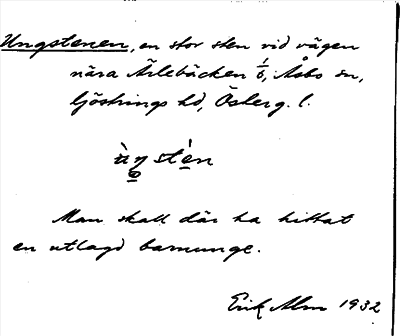 Ungstenen, en stor sten vid vägen
nära Ärlebäcken 1/6, Åsbo sn,
Göstrings hd, Österg. l.
ùŋstèn
Man skall där ha hittat
en utlagd barnunge.
Erik Alm 1932